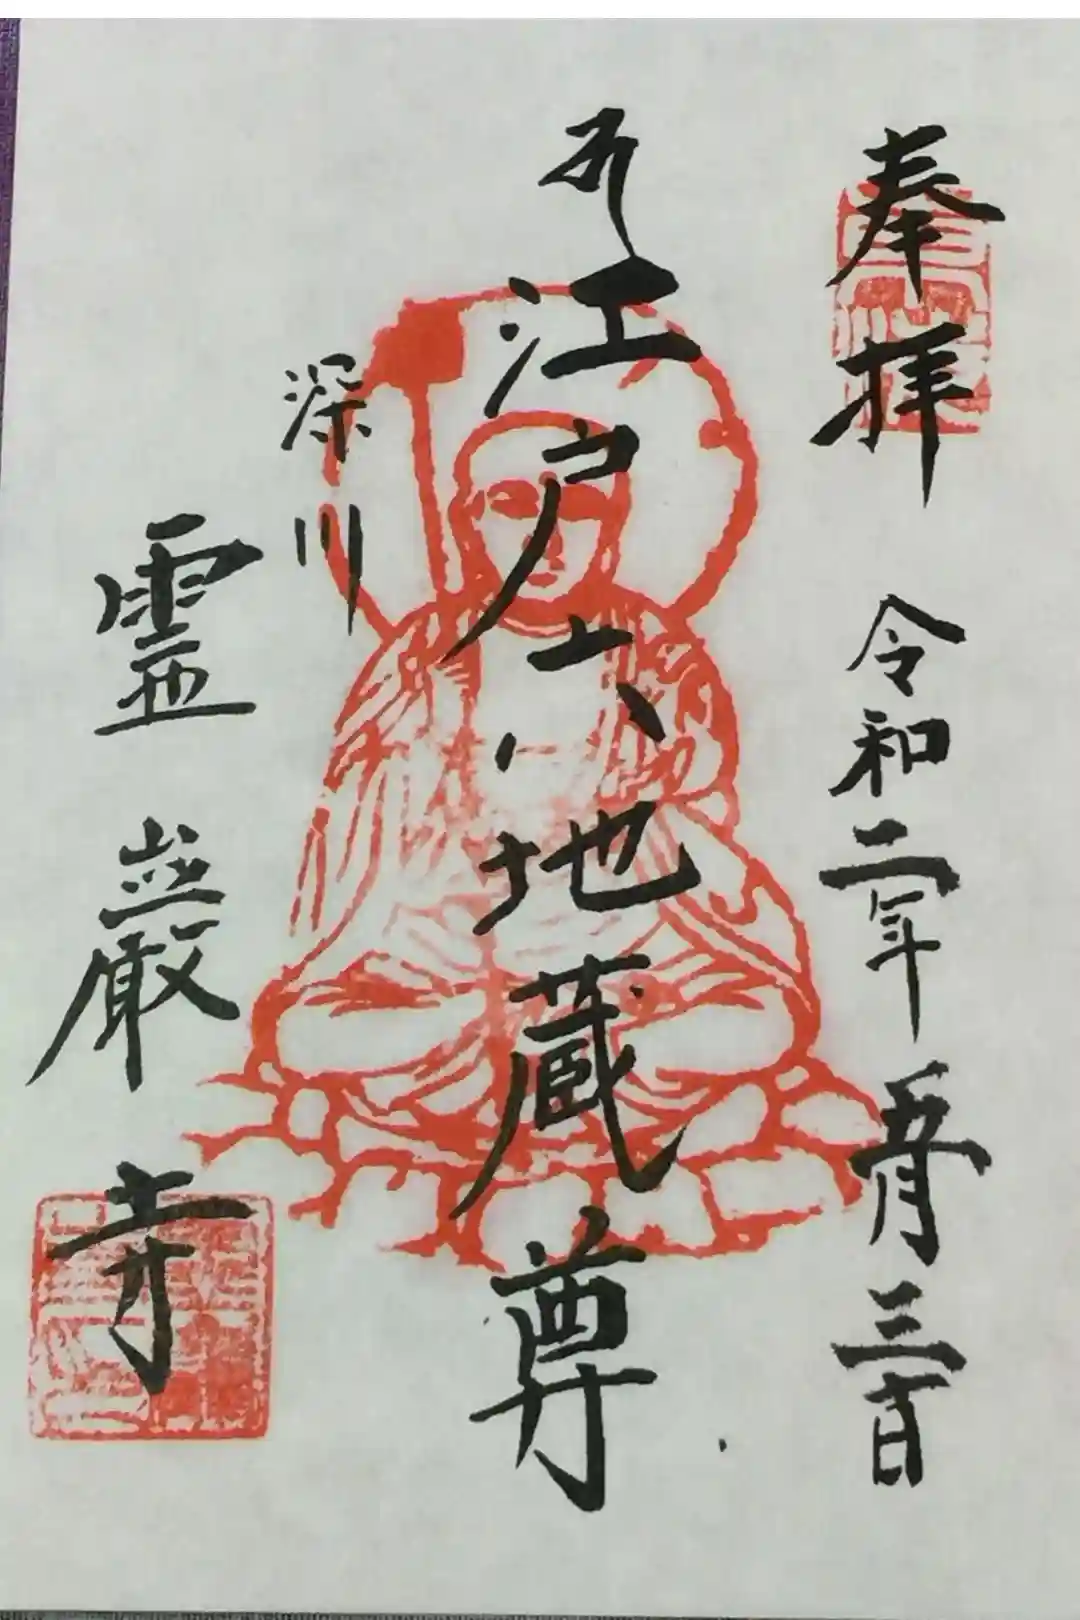 奉拝 令和二年五月三十日
江戸六地蔵尊
深川
霊巌寺